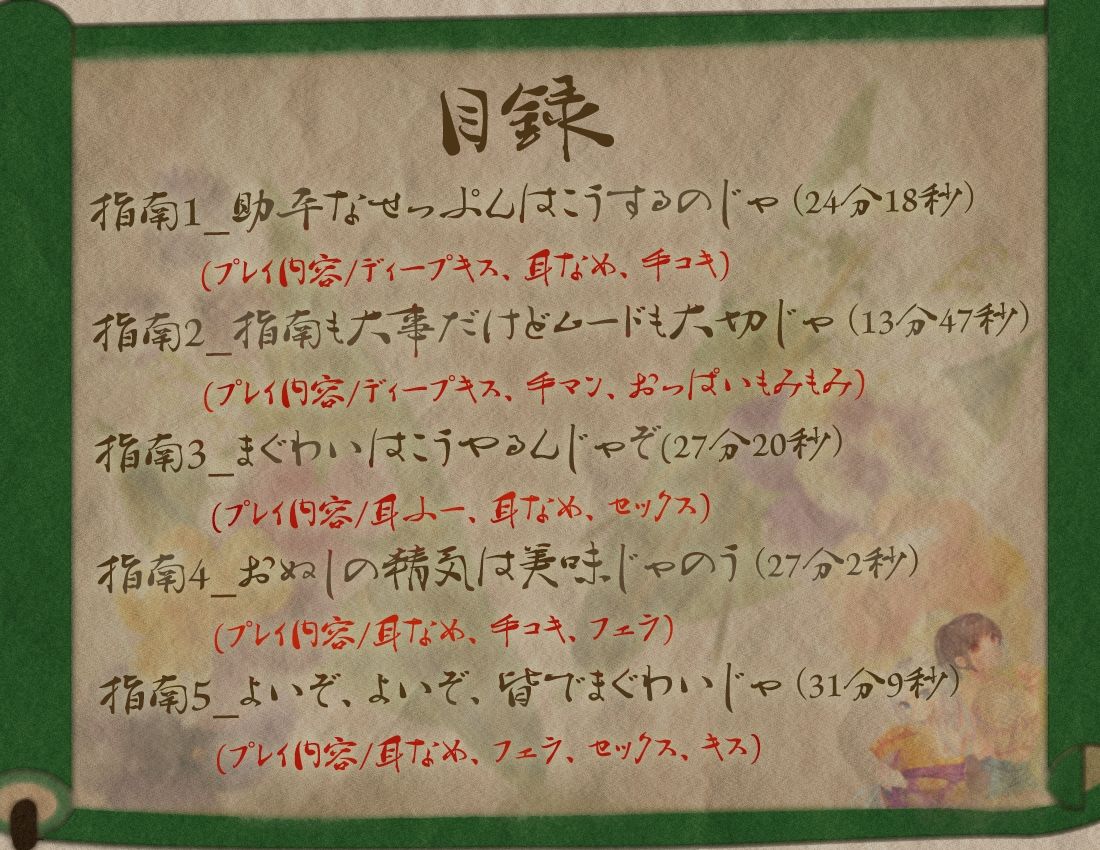 目録
指南1_助平なせっぷんはこうするのじゃ(24分18秒)
(プレイ内容/ディープキス、耳なめ、手コキ)
指南2_指南も大事だけどムードも大切じゃ(13分47秒)
(プレイ内容/ディープキス、手マン、おっぱいもみもみ)
指南3_まぐわいはこうやるんじゃぞ(27分20秒)
(プレイ内容/耳ふー、耳なめ、セックス)
指南4_おぬしの精気は美味じゃのう(27分2秒)
(プレイ内容/耳なめ、手コキ、フェラ)
指南5_よいぞ、よいぞ、皆でまぐわいじゃ(31分9秒)
(プレイ内容/耳なめ、フェラ、セックス、キス)